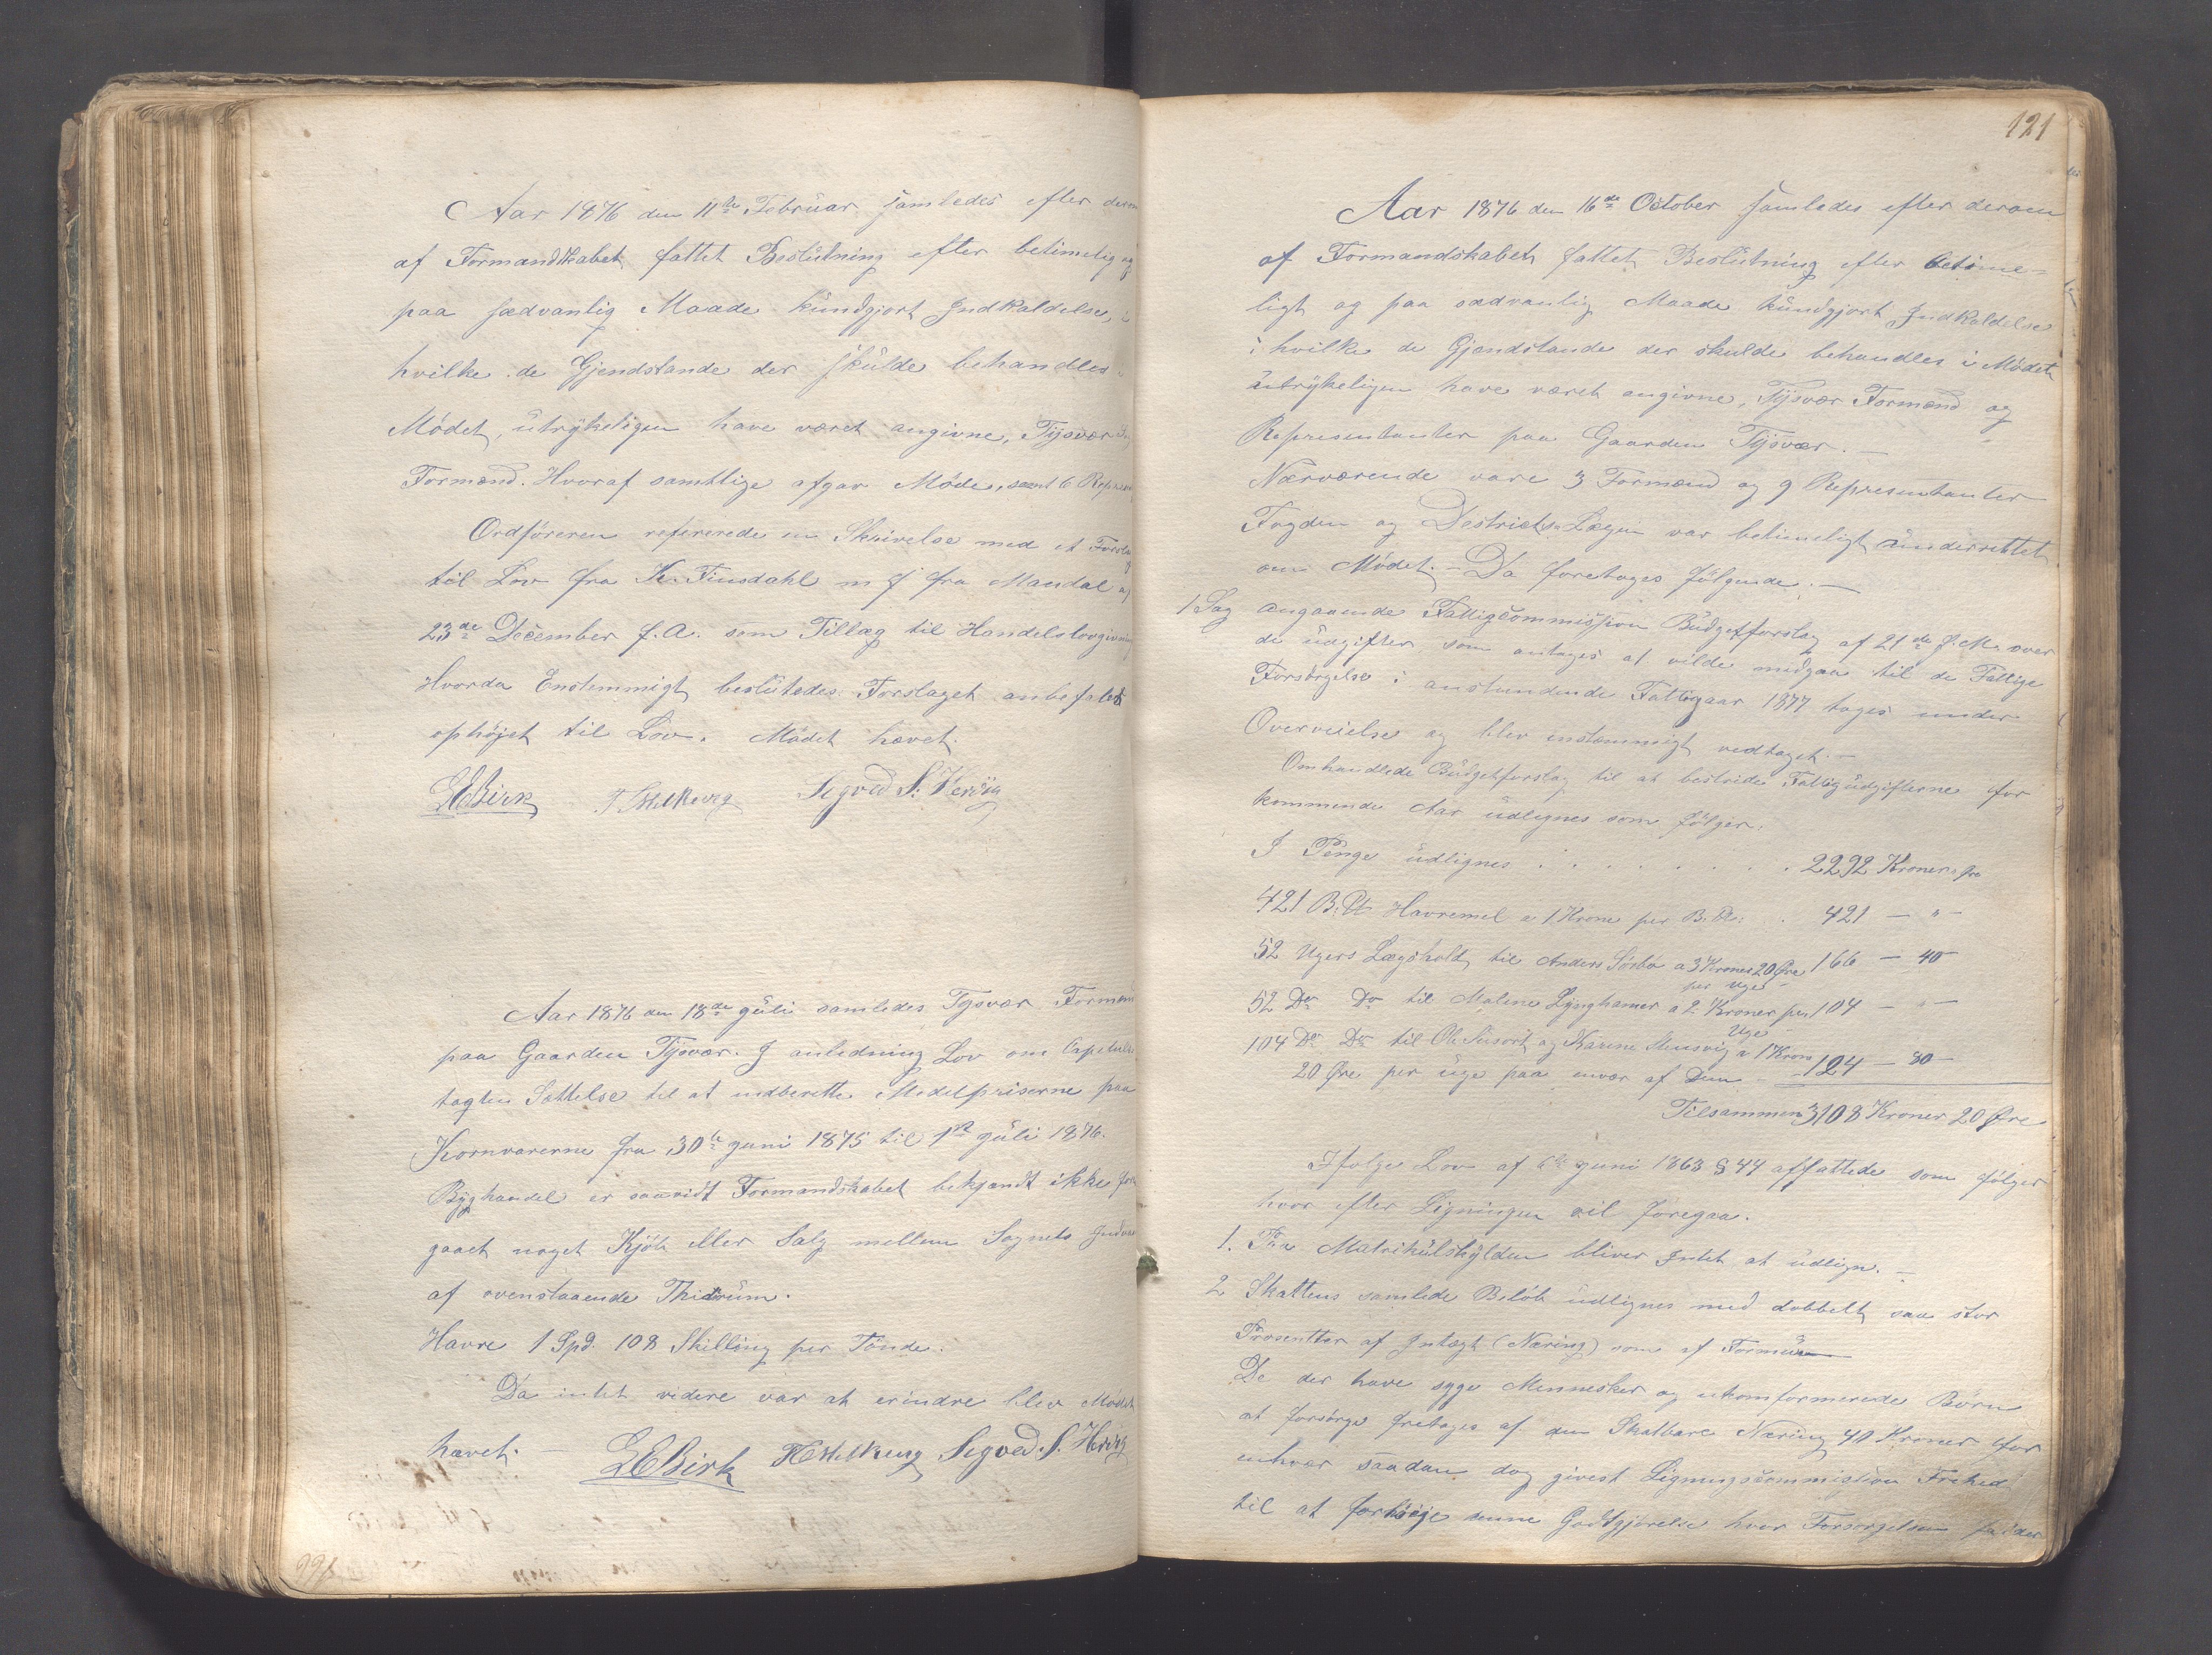 Aar 1876 den 11te Februar samledes efter derom
af Formandskabet fattet Beslutning efter betimelig og
paa sædvanlig Maade kundgjort Indkaldelse, i
hvilke de Gjendstande der skulde behandles i
Mødet, utrykeligen have været angivne, Tysvær
Formænd. Hvoraf samtlige afgav Møde, samt 6 Repræ
Ordføreren refererede en Skrivelse med et Forslag
til Lov fra K. Finsdahl m f fra Mandal af
23de December f. A. som Tillæg til Handelslovgivning
Hvorda Enstemmigt beslutedes: Forslaget anbefales
ophøjet til Lov. Mødet hævet.
LEBirk Sigved S. Hervig
Aar 1876 den 18de Juli samledes Tysvær Formænd
paa Gaarden Tysvær. I anledning Lov om Capituls
tagten Sættelse til at indberette Medelpriserne paa
Kornvarerne fra 30te Juni 1875 til 1st Juli 1876.
Byghandel er saavidt Formandskabet bekjændt ikke fore
gaaet noget Kjøb eller Salg mellem Sognets Indvaa
af ovenstaaende Thidsrum.
Havre 1 Spd. 108 Skilling per Tønde.
Da intet videre var at erindre blev Mødet
hævet. —
LEBirk Sigved S. Hervig
121
Aar 1876 den 16de October samledes efter derom
af Formandskabet fattet Beslutning efter betime-
ligt og paa sædvanlig Maade kundgjort Indkaldelse
i hvilke de Gjendstande der skulde behandles i Mødet
utrykeligen have været angivne, Tysvær Formænd og
Repræsentanter paa Gaarden Tysvær. —
Nærværende vare 3 Formænd og 9 Repræsentanter
Fogden og Destricts-Lægen var betimeligt underrettet
om Mødet. — Da foretages følgende: —
1 Sag angaaende Fattigcommission Budgetforslag af 21de f. M. over
de udgifter som antages at vilde medgaa til de Fattige
Forsørgelse i anstundende Fattigaar 1877 tages under
Overveielse og blev enstemmigt vedtaget. —
Omhandlede Budgetforslag til at bestride Fattigudgifterne for
kommende Aar udlignes som følger.
I Penge udlignes . . . . . . . . 2292 Kroner Øre
421 B. ℔ Havremel a 1 Krone per B. ℔: . 421 — " —
52 Ugers Lægshold til Anders Sørbø a 3 Kroner 20 Øre 166 — 40
per Uge —
52 Do Do til Malene Lynghamer a 2 Kroner per 104 — " —
Uge
104 Do Do til Ole og Karine a 1 Kron
20 Øre per uge paa envær af Dem — 124 — 80 —
Tilsammen 3108 Kroner 20 Øre
Ifølge Lov af 6te Juni 1863 § 44 affattede som følger
hvor efter Ligningen vil foregaa.
1. Paa Matrikulskylden bliver Intet at udlign. —
2 Skattens samlede Beløb udlignes med dobbelt saa stor
Prosentter af Intægt (Næring) som af Formue
De der have syge Mennesker og ukomformerede Børn
at forsørge fretages af den Skatbare Næring 40 Kroner for
enhver saadan dog givest Ligningscommission Frihed
til at forhøje denne Godtgjørelse hvor Forsorgelsen